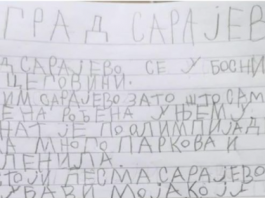 ГРАД САРАЈЕВ
Д САРАЈЕВО СЕ У БОСНИ
ЦЕГОВИНИ.
ИМ САРАЈЕВО ЗАТО ШТО САМ
ЕНА РОЂЕНА У ЊЕМУ
НАТ ЈЕ ПО ОЛИМПИЈАД
А МНОГО ПАРКОВА И
ЛЕНИЛА.
ТОЈИ ПЕСМА САРАЈЕВО
УБАВИ МОЈА КОЈУ